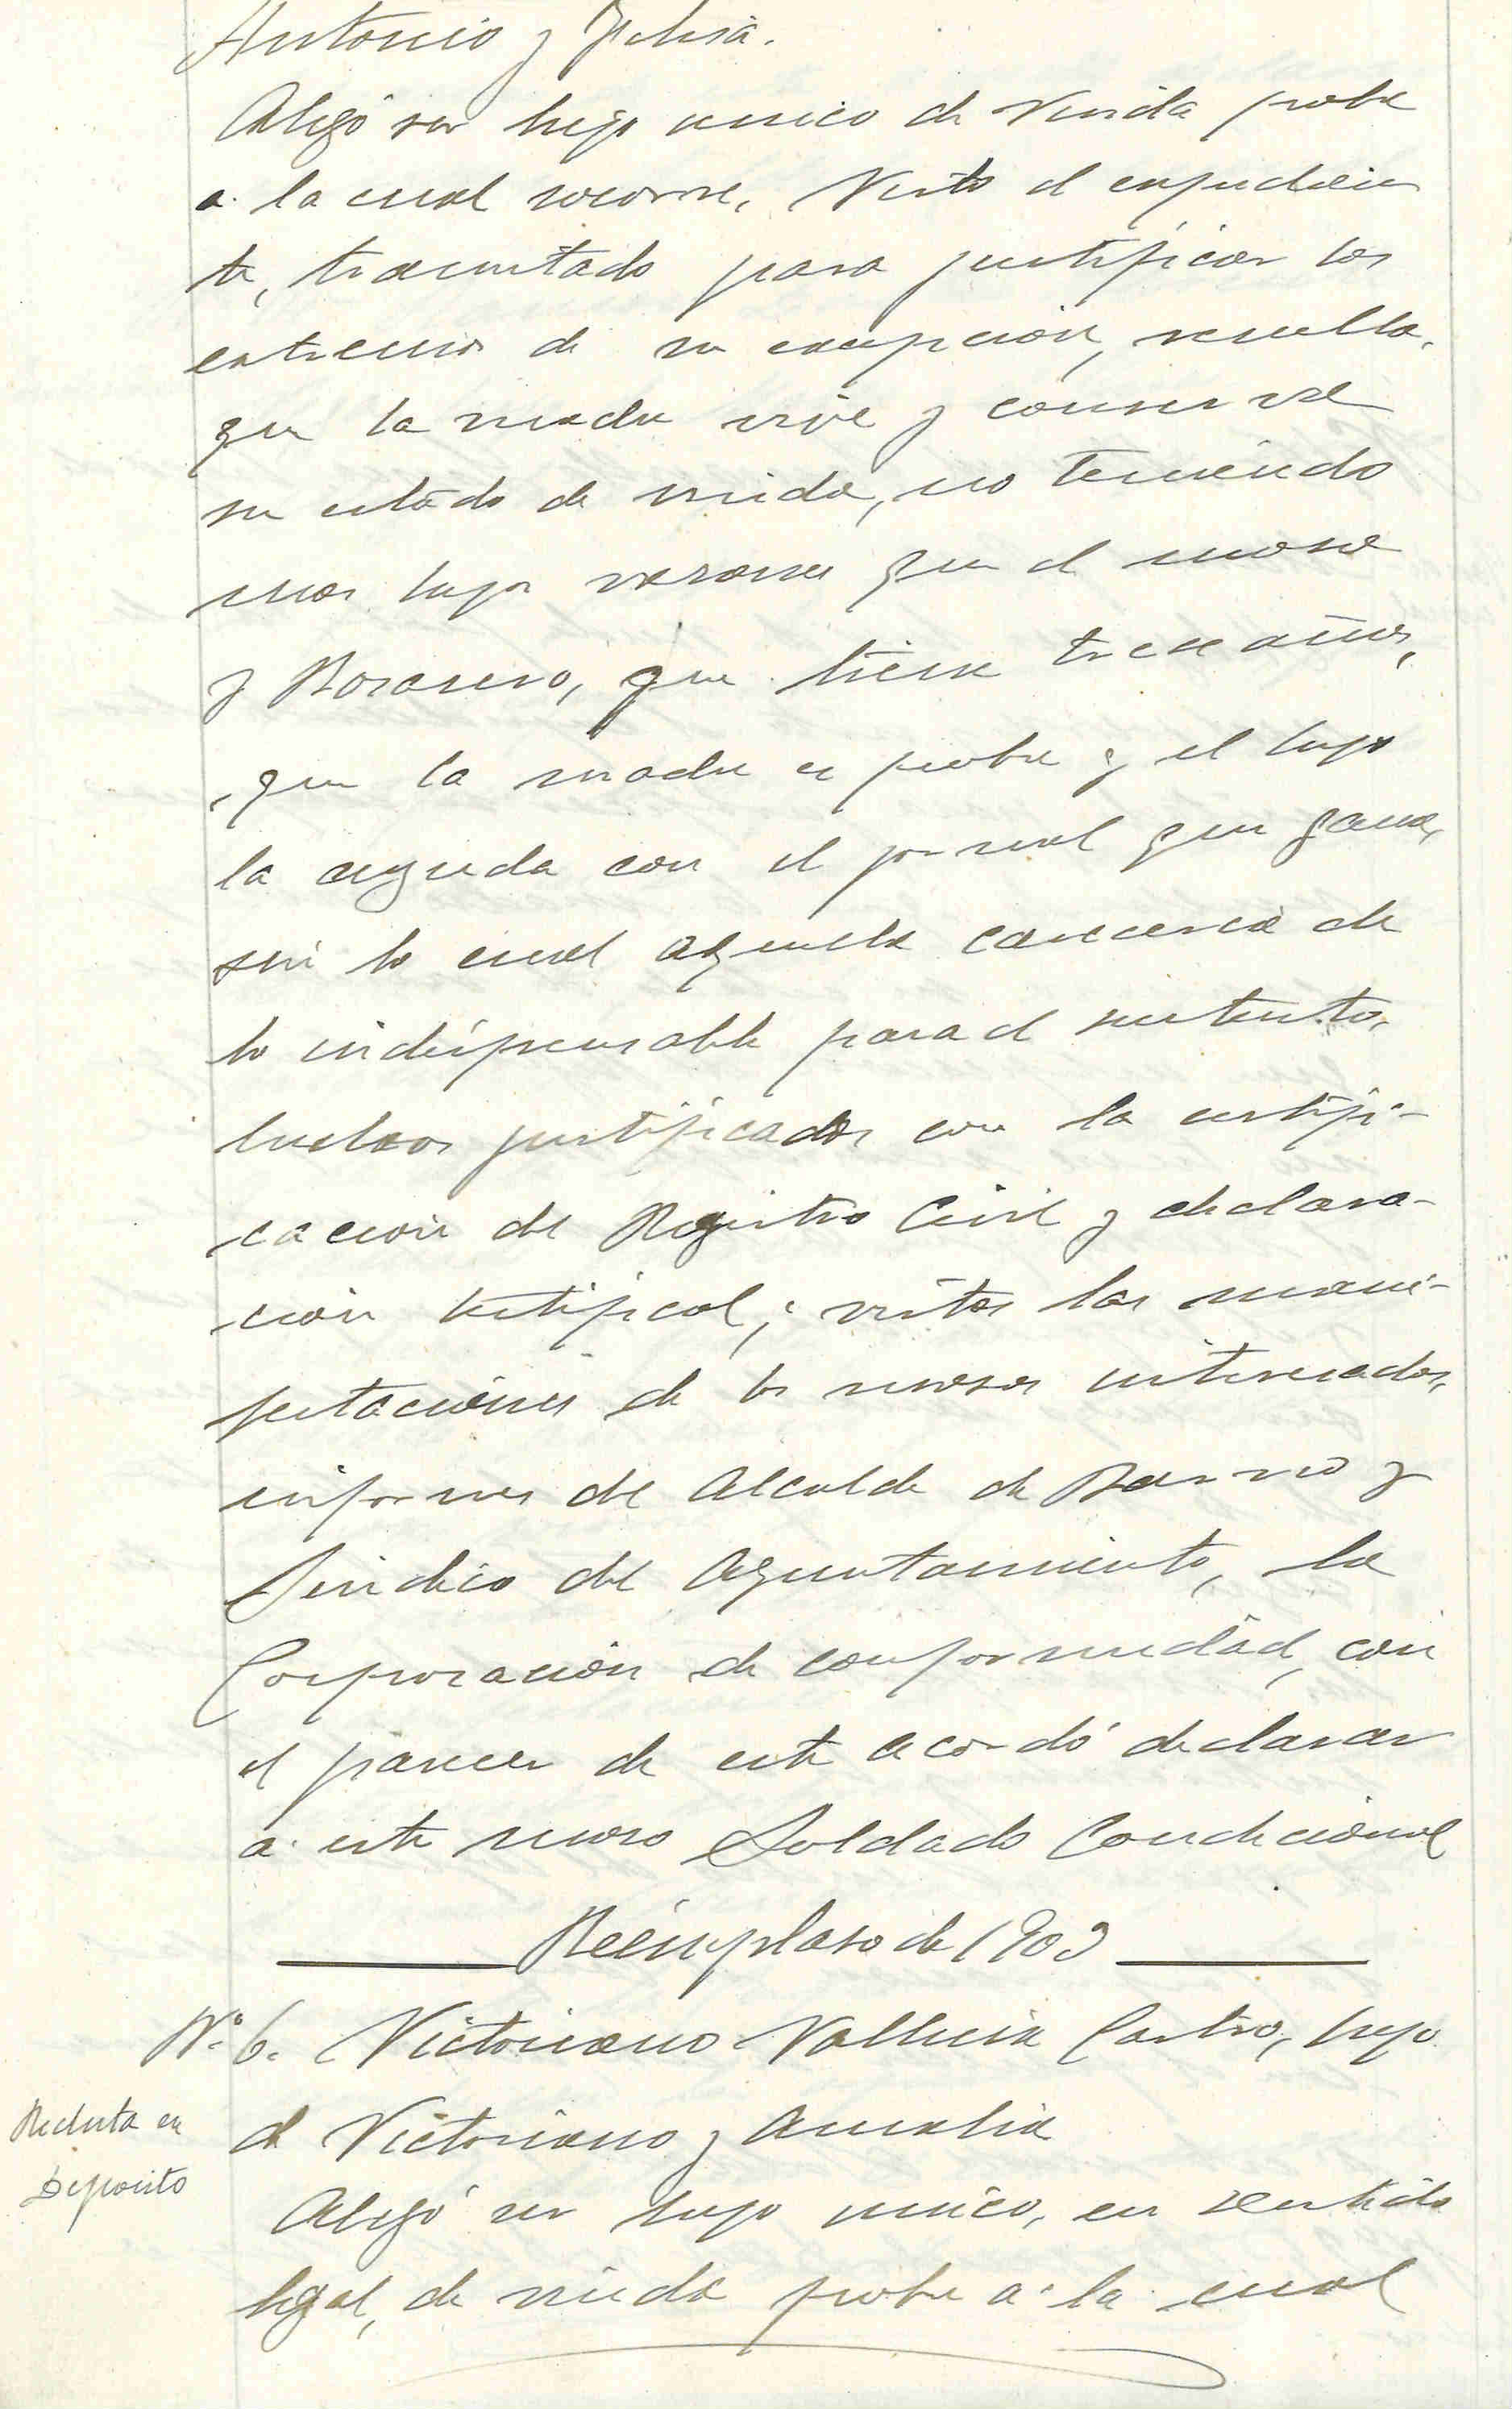 Antonio y Felisa.
Alegó ser hijo unico de Viuda pobre
a la cual socorre, Visto el expedien
te, tramitado para justificar los
extremos de su excepción, resulta,
que la madre vive y conserva
su estado de viuda, no teniendo
mas hijos varones que el mozo
y                , que tiene trece años,
que la madre es pobre y el hijo
la ayuda con el jornal que gana,
sin lo cual aquella careceria de
lo indispensable para el sustento,
hechos justificados con la certifi-
cacion del Registro Civil y declara-
cion testifical; vistas las mani-
festaciones de los mozos interesados,
informes del Alcalde de Barrio y
Sindico del Ayuntamiento, la
Corporación de conformidad, con
el parecer de este acordó declarar
a este mozo Soldado Condicional
Reemplazo de 1903
Nº 6. Victoriano Vallecia Castro, hijo
de Victoriano y Amalia
Recluta en
Deposito
Alegó ser hijo unico, en sentido
legal, de viuda pobre a la cual